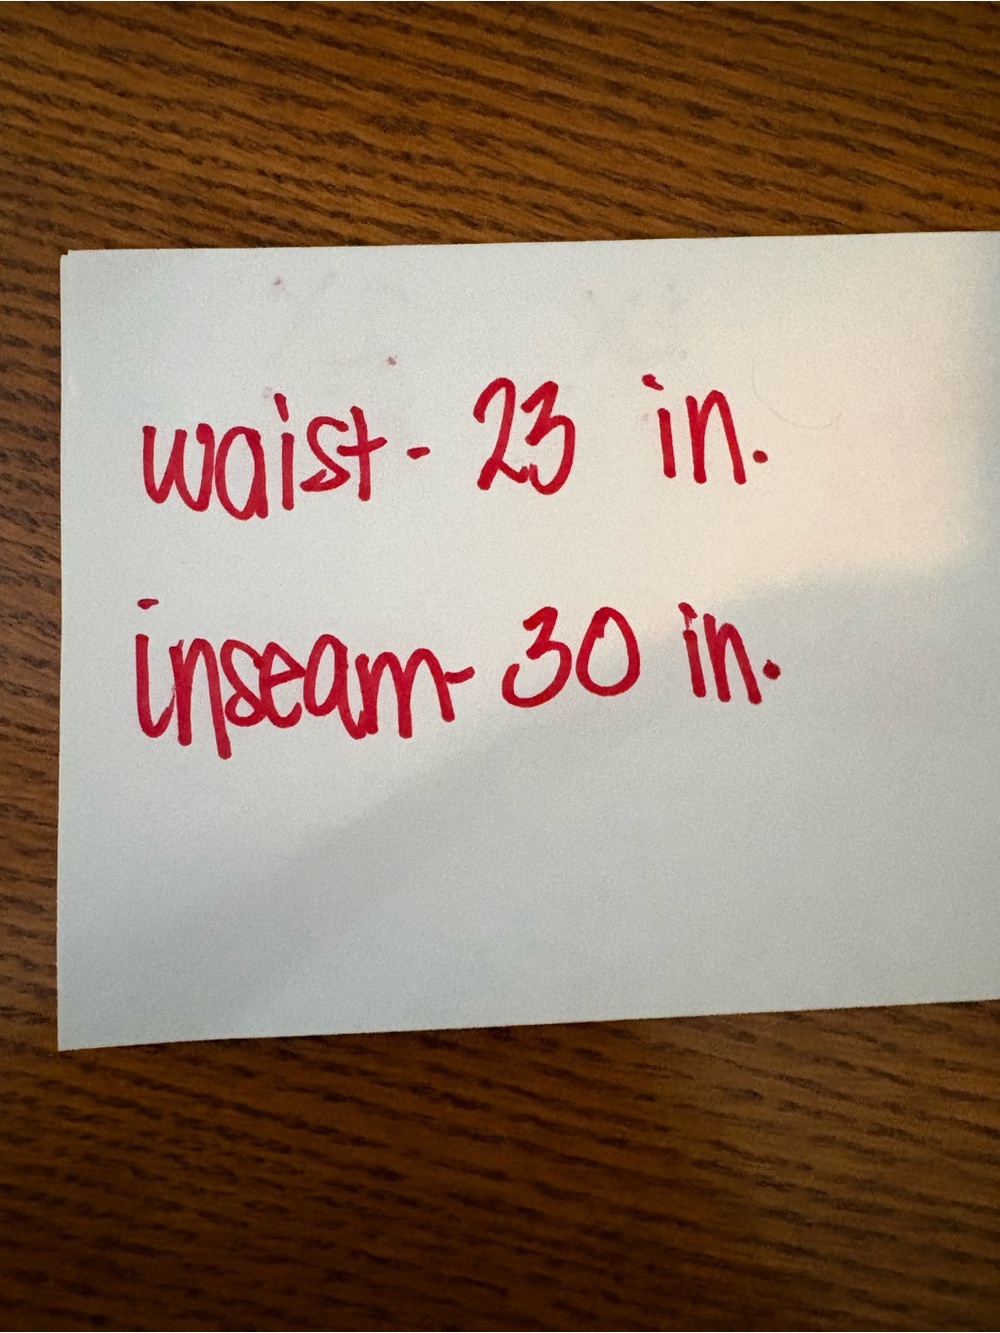 waist - 23 in.
inseam - 30 in.